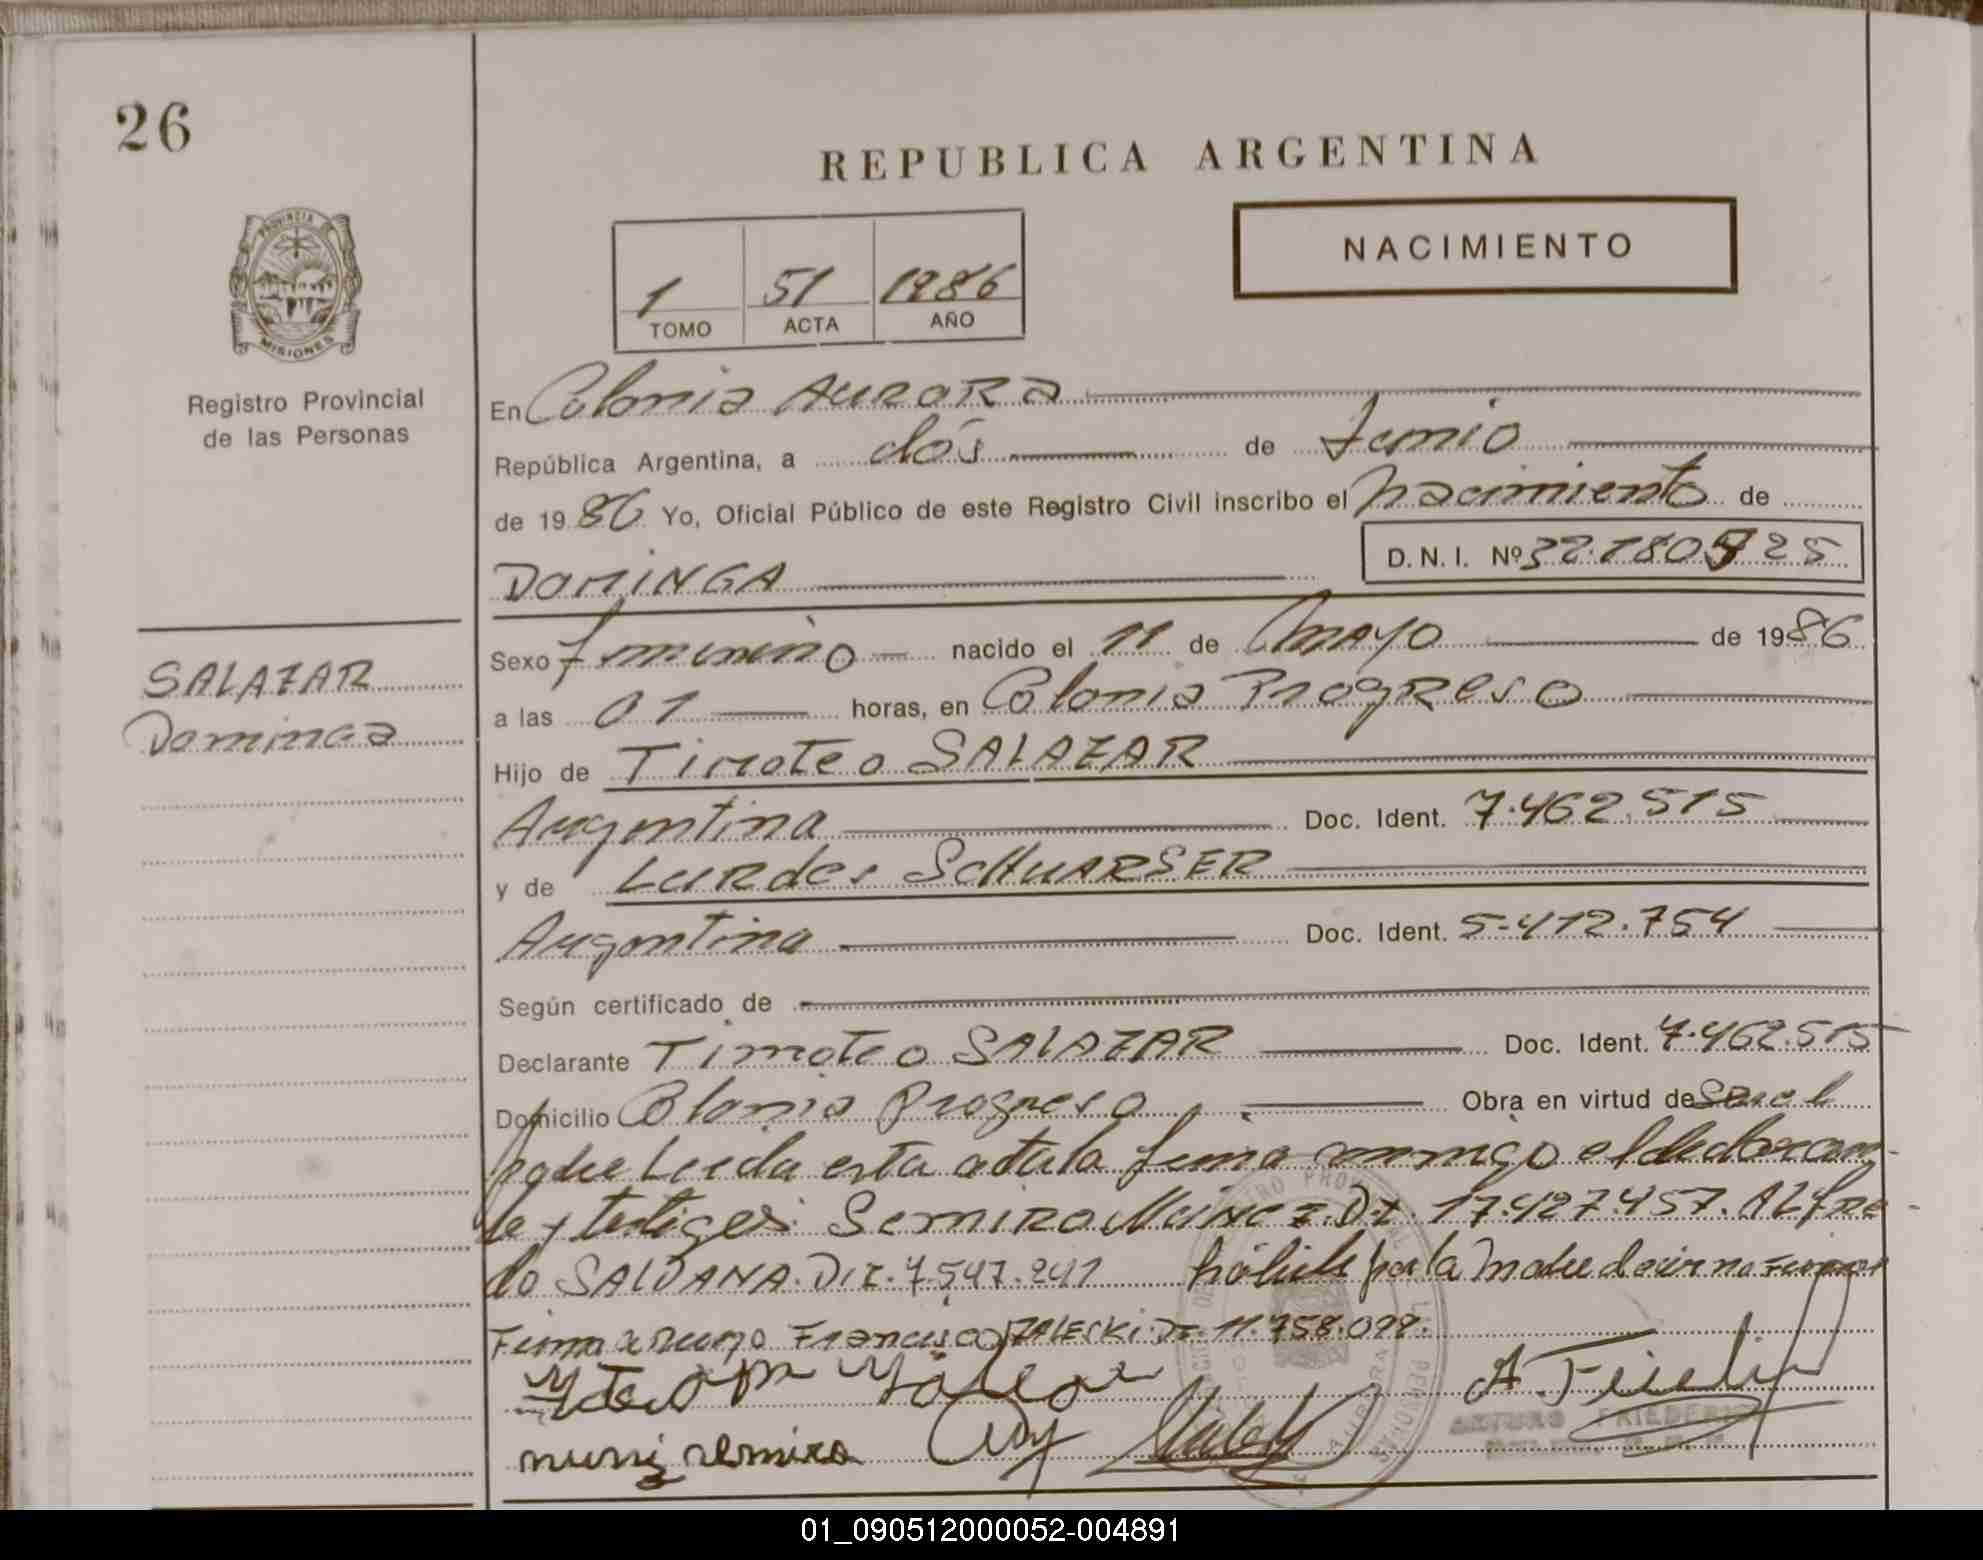 26
REPUBLICA ARGENTINA
PROVINCIA DE
MISIONES
Registro Provincial
de las Personas
NACIMIENTO
1 51 1986
TOMO ACTA AÑO
En Colonia AURORA
República Argentina, a dós de Junio
de 1986 Yo, Oficial Público de este Registro Civil inscribo el nacimiento de
DOMINGA D.N.I. Nº 32.180.925
SALAZAR
Dominga
Sexo femenino nacido el 11 de mayo de 1986
a las 01 horas, en Colonia Progreso
Hijo de Timoteo SALAZAR
Argentina Doc. Ident. 7.462.515
y de Lurdes SCHUARSER
Argentina Doc. Ident. 5.412.754
Según certificado de
Declarante Timoteo SALAZAR Doc. Ident. 7.462.515
Domicilio Colonia Progreso Obra en virtud de ser el
padre Leida esta acta la firma conmigo el declaran-
te y testigos Semiro Muñez D.I. 17.427.457. Alfre-
do SALDANA. D.I. 7.547.241 por la Madre decir no Firmar
Firma a ruego Francisco ZALESKI. DI. 11.758.098.
A. Friederi
ARTURO FRIEDERI
01_090512000052-004891